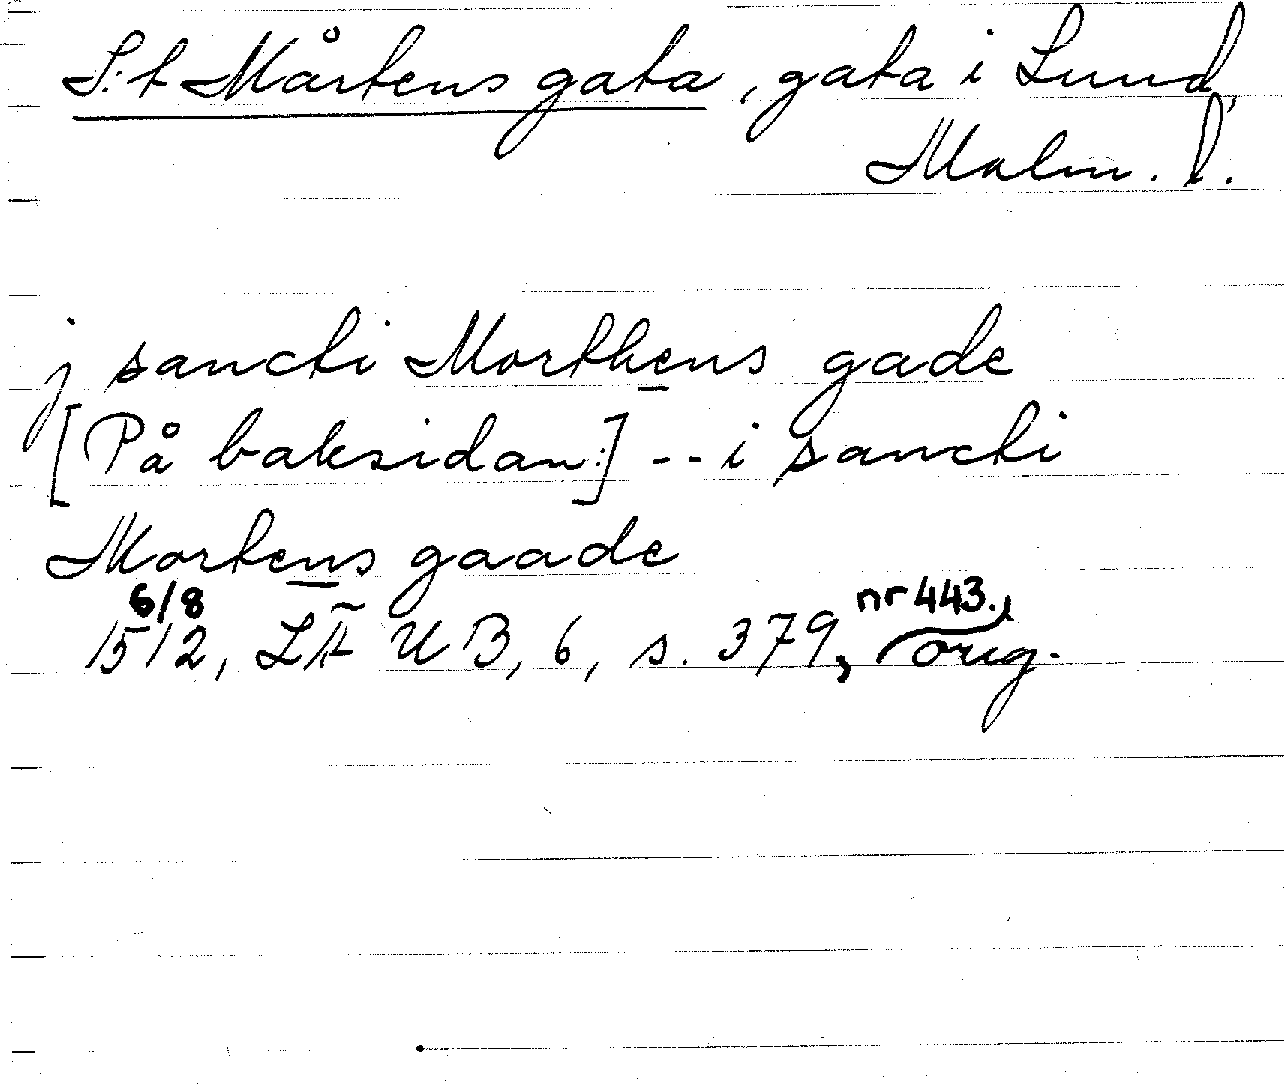 S:t Mårtens gata, gata i Lund,
Malm. l.
j sancti Morthens gade
[På baksidan:] -- i sancti
Mortens gaade
6/8
1512, LÄUB, 6, s. 379, nr 443., orig.